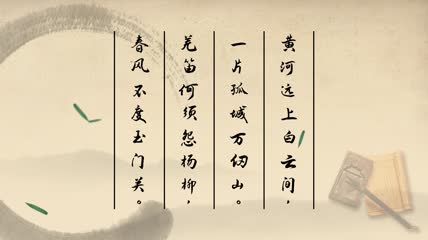 黄河远上白云间，
一片孤城万仞山。
羌笛何须怨杨柳，
春风不度玉门关。